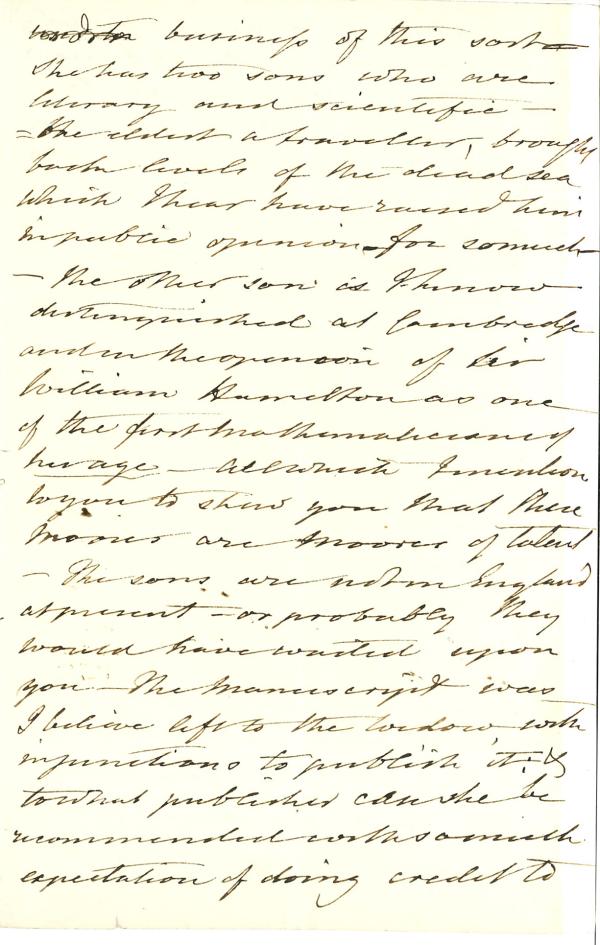 business of this sort
She has two sons who are
literary and scientific —
= the eldest a traveller, brought
back levels of the dead sea
which I hear have raised him
in public opinion for so much
— The other son is I know
distinguished at Cambridge
and in the openion of Sir
William Hamelton as one
of the first Mathematicians of
his age — All which I mention
to you to shew you that these
Moores are Moores of talent
— The sons are not in England
at present — or probably they
would have waited upon
you — The Manuscript was
I believe left to the widow with
injunctions to publish it; &
to what publisher can she be
recommended with so much
expectation of doing credit to